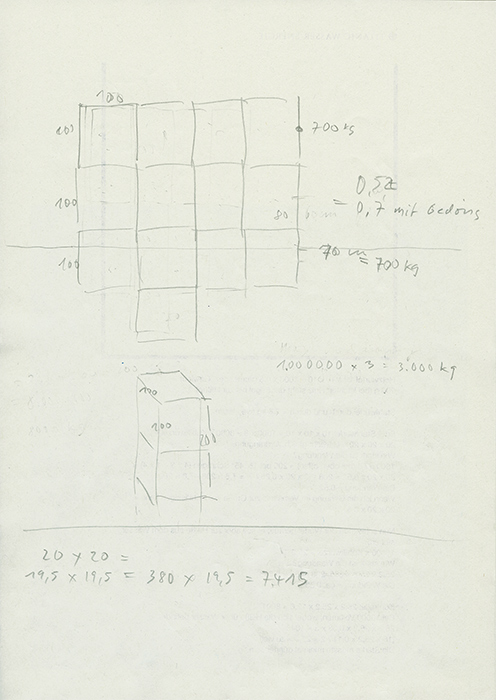 100
100
700 kg
100
0,5t
= 0,7 mit Gedöns
80
100
70 m
= 700 kg
1.000.000 x 3 = 3.000 kg
100
100
200
20 x 20 =
19,5 x 19,5 = 380 x 19,5 = 7.415